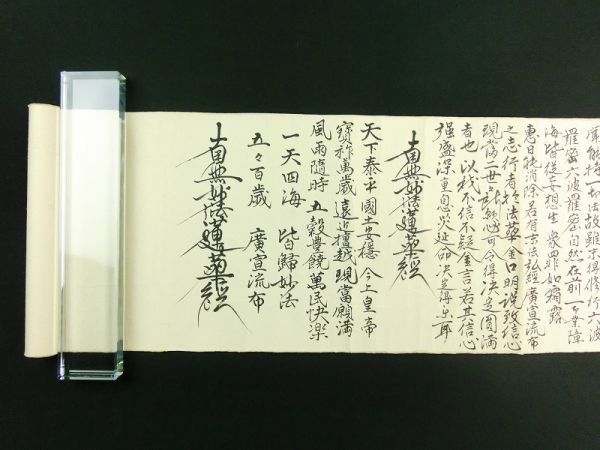 能持一切法故雖未得修行六波
羅蜜六波羅蜜自然在前一切業障
海皆從妄想生 衆罪如霜露
惠日能消除若有末法弘經廣宣流布
之志行者於法華金口明説致信心
現當二世心可令得決定圓滿
者也以我不信不疑金言若其信心
強盛深重息災延命決定得樂耶
南無妙法蓮華經
天下泰平國土安穩 今上皇帝
寳祚萬歳 遠近檀越 現當願滿
風雨隨時 五穀豐饒萬民快樂
一天四海 皆歸妙法
五々百歳 廣宣流布
南無妙法蓮華經